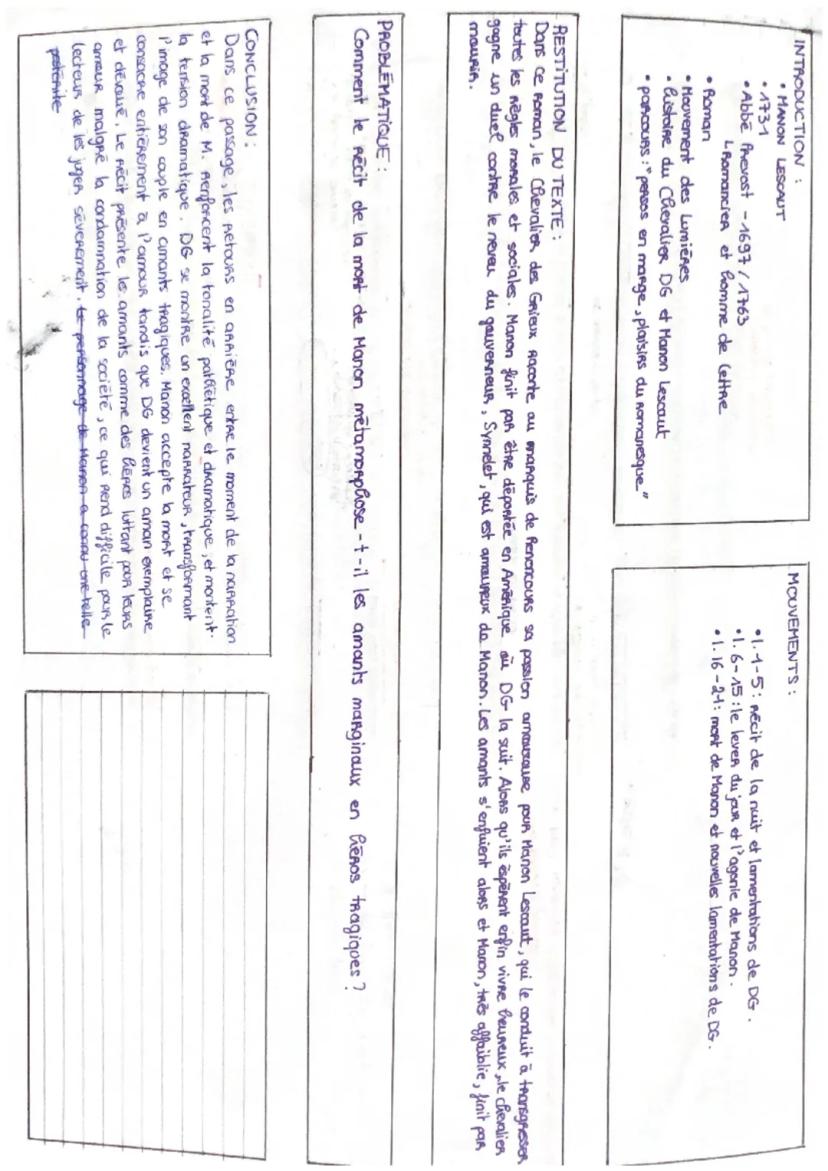 INTRODUCTION :
• MANON LESCAUT
• 1731
• Abbé Prevost - 1697 / 1763
↳ Romancier et homme de lettre
• Roman
• Mouvement des Lumières
• histoire du Chevalier DG et Manon Lescaut
• parcours : "persos en marge, plaisirs du romanesque"
MOUVEMENTS :
• l. 1-5 : récit de la nuit et lamentations de DG.
• l. 6-15 : le lever du jour et l'agonie de Manon.
• l. 16-21 : mort de Manon et nouvelles lamentations de DG.
RESTITUTION DU TEXTE :
Dans ce roman, le Chevalier des Grieux raconte au marquis de Renoncours sa passion amoureuse pour Manon Lescaut, qui le conduit à transgresser
toutes les règles morales et sociales. Manon finit par être déportée en Amérique où DG la suit. Alors qu'ils espèrent enfin vivre heureux, le chevalier
gagne un duel contre le neveu du gouverneur, Synnelet, qui est amoureux de Manon. Les amants s'enfuient alors et Manon, très affaiblie, finit par
mourir.
PROBLÉMATIQUE :
Comment le récit de la mort de Manon métamorphose-t-il les amants marginaux en héros tragiques ?
CONCLUSION :
Dans ce passage, les retours en arrière entre le moment de la narration
et la mort de M. renforcent la tonalité pathétique et dramatique, et montent
la tension dramatique. DG se montre un excellent narrateur, transformant
l'image de son couple en amants tragiques. Manon accepte la mort et se
consacre entièrement à l'amour tandis que DG devient un aman exemplaire
et dévoué. Le récit présente le amants comme des héros luttant pour leurs
amour malgré la condamnation de la société, ce qui rend difficile pour le
lecteur de les juger sévèrement. Le personnage de Manon a connu une telle
postérité